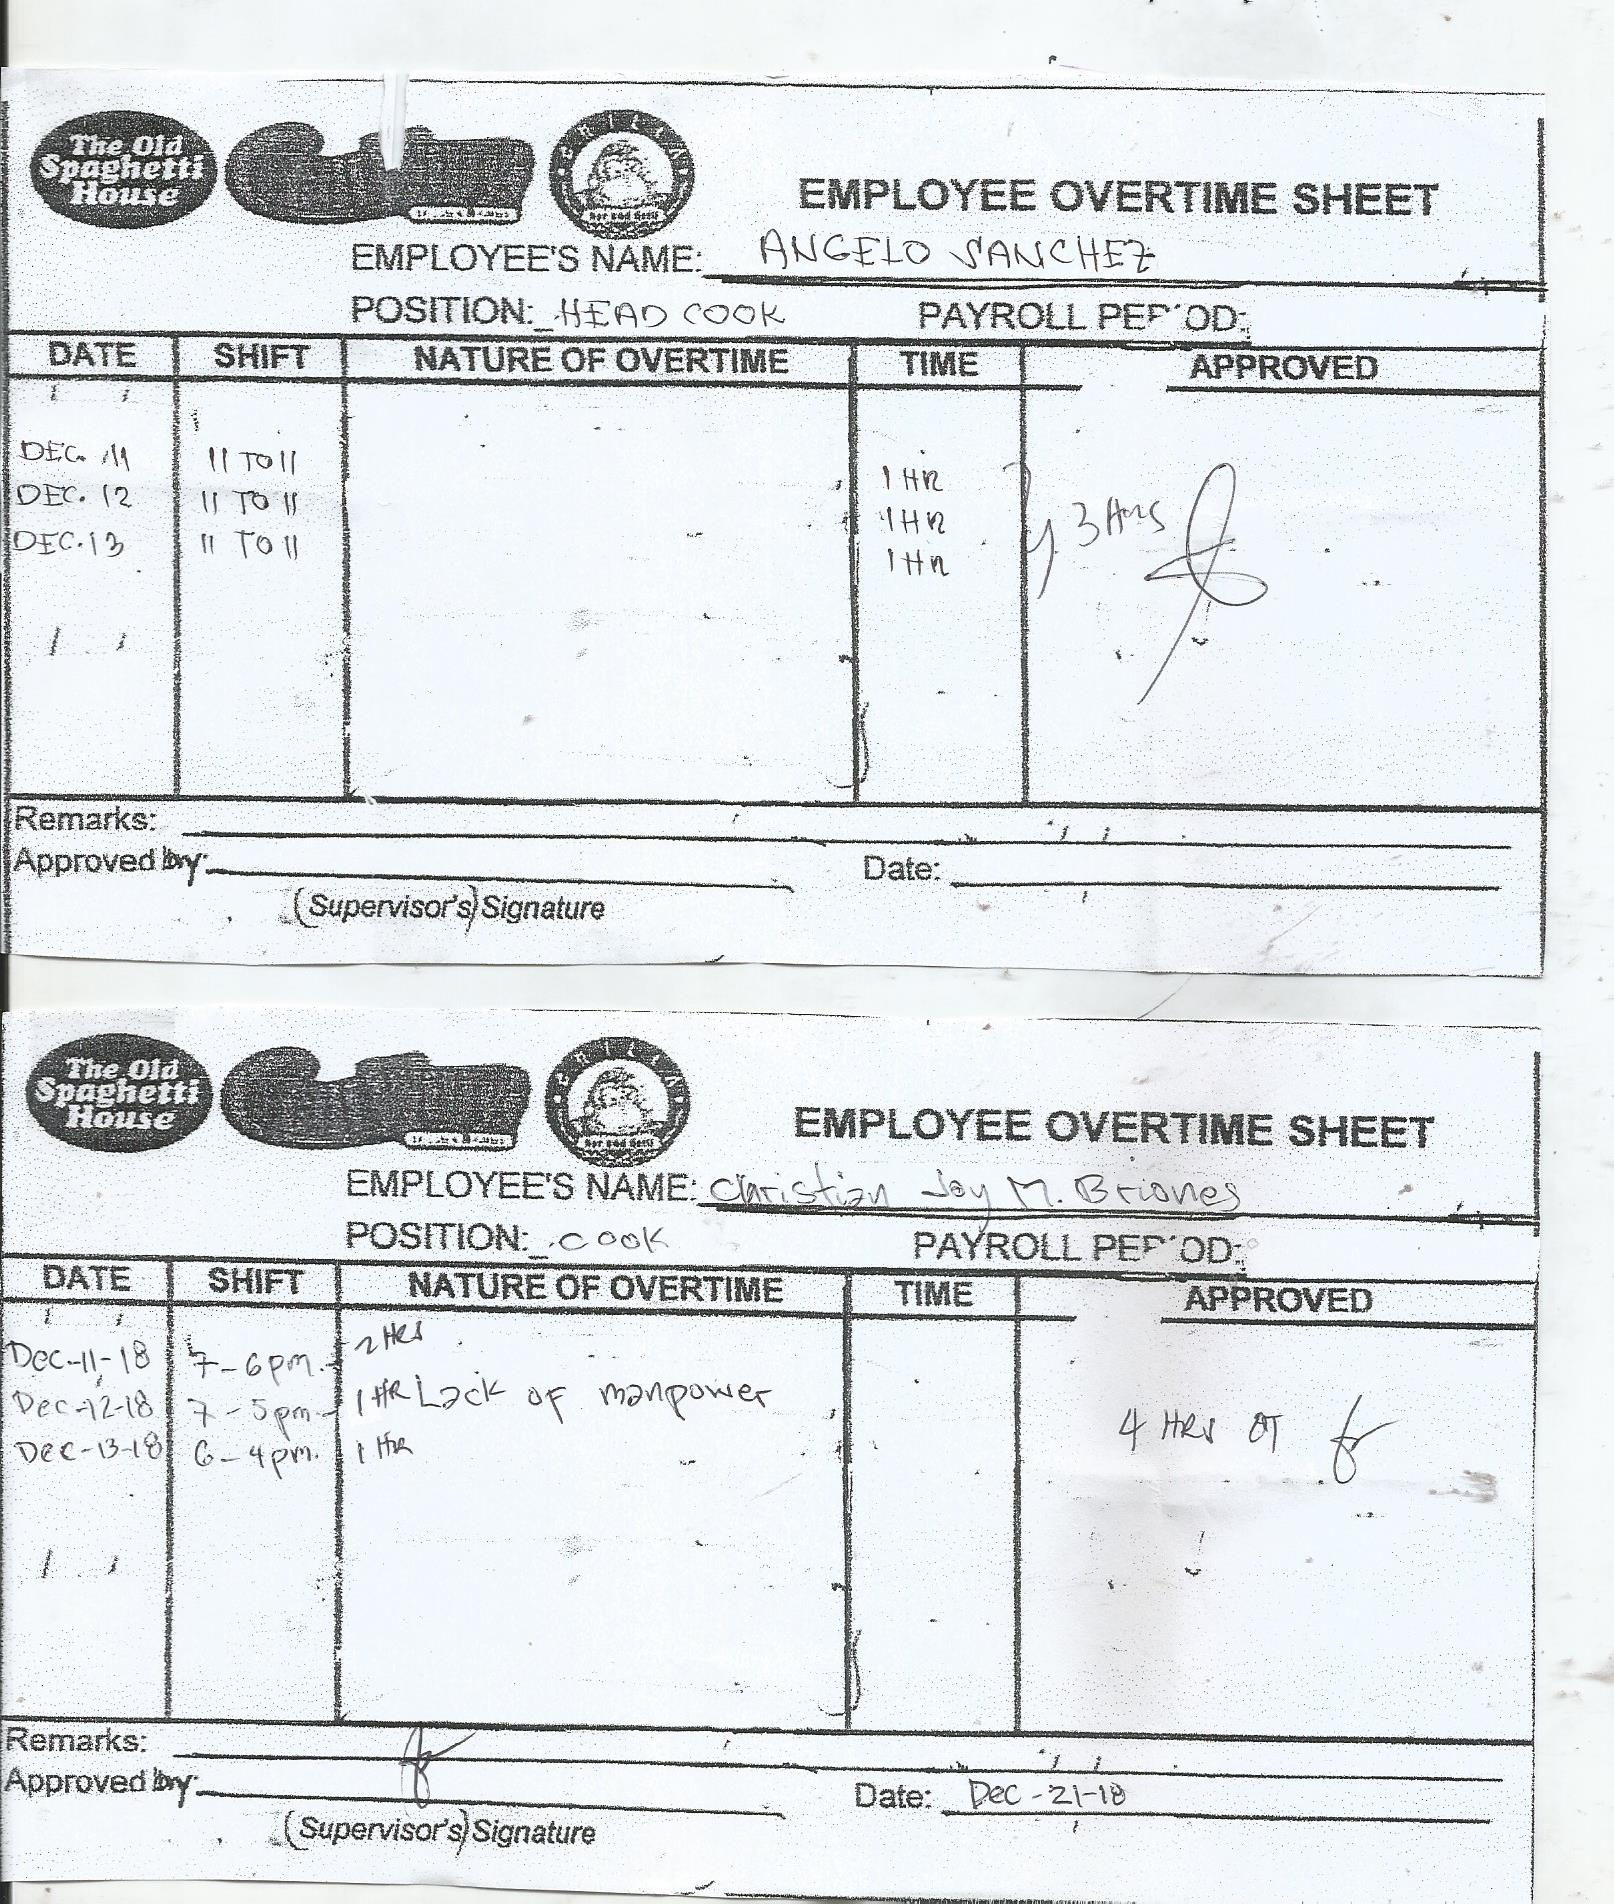 The Old
Spaghetti
House
GRILLA
EMPLOYEE OVERTIME SHEET
EMPLOYEE'S NAME: ANGELO SANCHEZ
POSITION: HEAD COOK PAYROLL PERIOD:
DATE SHIFT NATURE OF OVERTIME TIME APPROVED
DEC. 11 11 TO 11 1 HR
DEC. 12 11 TO 11 1 HR 3 HRS
DEC. 13 11 TO 11 1 HR
Remarks:
Approved by: Date:
(Supervisor's) Signature
The Old
Spaghetti
House
GRILLA
EMPLOYEE OVERTIME SHEET
EMPLOYEE'S NAME: Christian Joy M. Briones
POSITION: COOK PAYROLL PERIOD:
DATE SHIFT NATURE OF OVERTIME TIME APPROVED
Dec-11-18 7-6pm. 2 HRS
Dec-12-18 7-5pm. 1 HR Lack of manpower 4 HRS OT
Dec-13-18 6-4pm. 1 HR
Remarks:
Approved by: Date: Dec-21-18
(Supervisor's) Signature